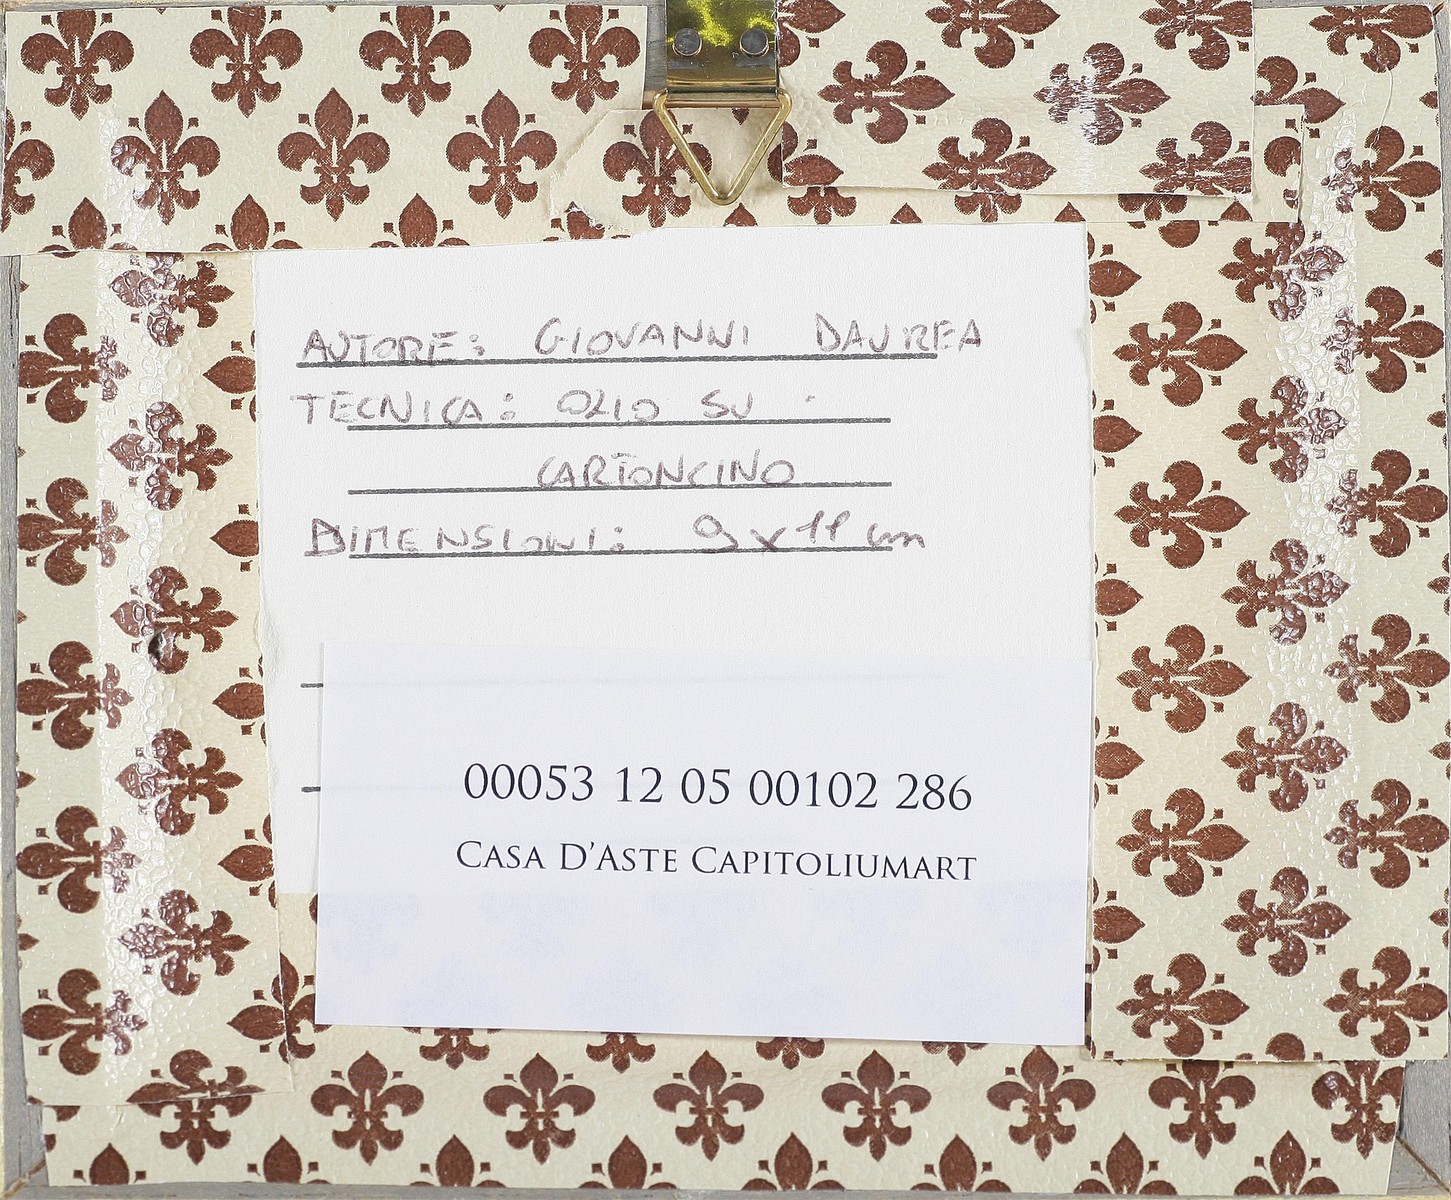 AUTORE: GIOVANNI DAUREA
TECNICA: OLIO SU
CARTONCINO
DIMENSIONI: 9x11 cm
00053 12 05 00102 286
CASA D'ASTE CAPITOLIUMART